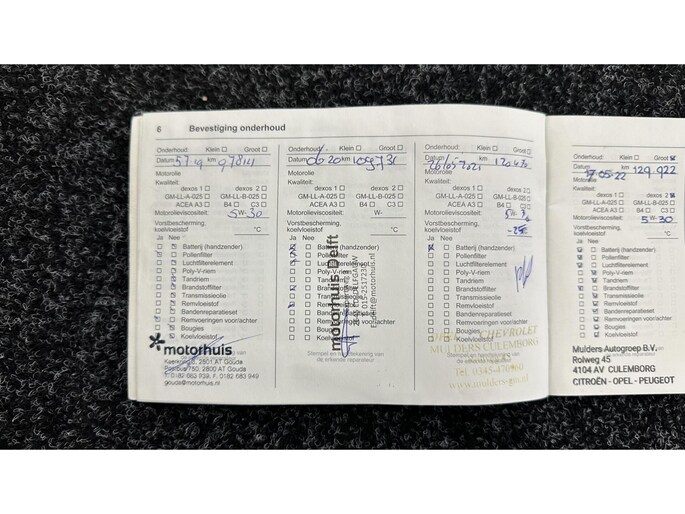 6 Bevestiging onderhoud
Onderhoud: Klein Groot
Datum km 97814
Motorolie
Kwaliteit:
dexos 1 dexos 2
GM-LL-A-025 GM-LL-B-025
ACEA A3 B4 C3
Motorolieviscositeit: 5W-30
Vorstbescherming,
koelvloeistof °C
Ja Nee
Batterij (handzender)
Pollenfilter
Luchtfilterelement
Poly-V-riem
Tandriem
Brandstoffilter
Transmissieolie
Remvloeistof
Bandenreparatieset
Remvoeringen voor/achter
Bougies
Koelvloeistof
motorhuis
Kerkring 2, 2801 AT Gouda
Postbus 750, 2800 AT Gouda
T: 0182 683 939, F: 0182 683 949
gouda@motorhuis.nl
Onderhoud: Klein Groot
Datum 06 20 km 109731
Motorolie
Kwaliteit:
dexos 1 dexos 2
GM-LL-A-025 GM-LL-B-025
ACEA A3 B4 C3
Motorolieviscositeit: W-
Vorstbescherming,
koelvloeistof °C
Ja Nee
Batterij (handzender)
Pollenfilter
Luchtfilterelement
Poly-V-riem
Tandriem
Brandstoffilter
Transmissieolie
Remvloeistof
Bandenreparatieset
Remvoeringen voor/achter
Bougies
motorhuis Delft
Stempel en handtekening van
de erkende reparateur
Onderhoud: Klein Groot
Datum 26/05/2021 km
Motorolie
Kwaliteit:
dexos 1 dexos 2
GM-LL-A-025 GM-LL-B-025
ACEA A3 B4 C3
Motorolieviscositeit:
Vorstbescherming,
koelvloeistof
Ja Nee
Batterij (handzender)
Pollenfilter
Luchtfilterelement
Poly-V-riem
Tandriem
Brandstoffilter
Transmissieolie
Remvloeistof
Bandenreparatieset
Remvoeringen voor/achter
Bougies
CHEVROLET
MULDERS CULEMBORG
www.mulders-gm.nl
Onderhoud: Klein Groot
Datum 17-05-22 km 129.922
Motorolie
Kwaliteit:
dexos 1 dexos 2
GM-LL-A-025 GM-LL-B-025
ACEA A3 B4 C3
Motorolieviscositeit: 5W-30
Vorstbescherming,
koelvloeistof °C
Ja Nee
Batterij (handzender)
Pollenfilter
Luchtfilterelement
Poly-V-riem
Tandriem
Brandstoffilter
Transmissieolie
Remvloeistof
Bandenreparatieset
Remvoeringen voor/achter
Bougies
Koelvloeistof
Mulders Autogroep B.V.
Rolweg 45
4104 AV CULEMBORG
CITROËN - OPEL - PEUGEOT